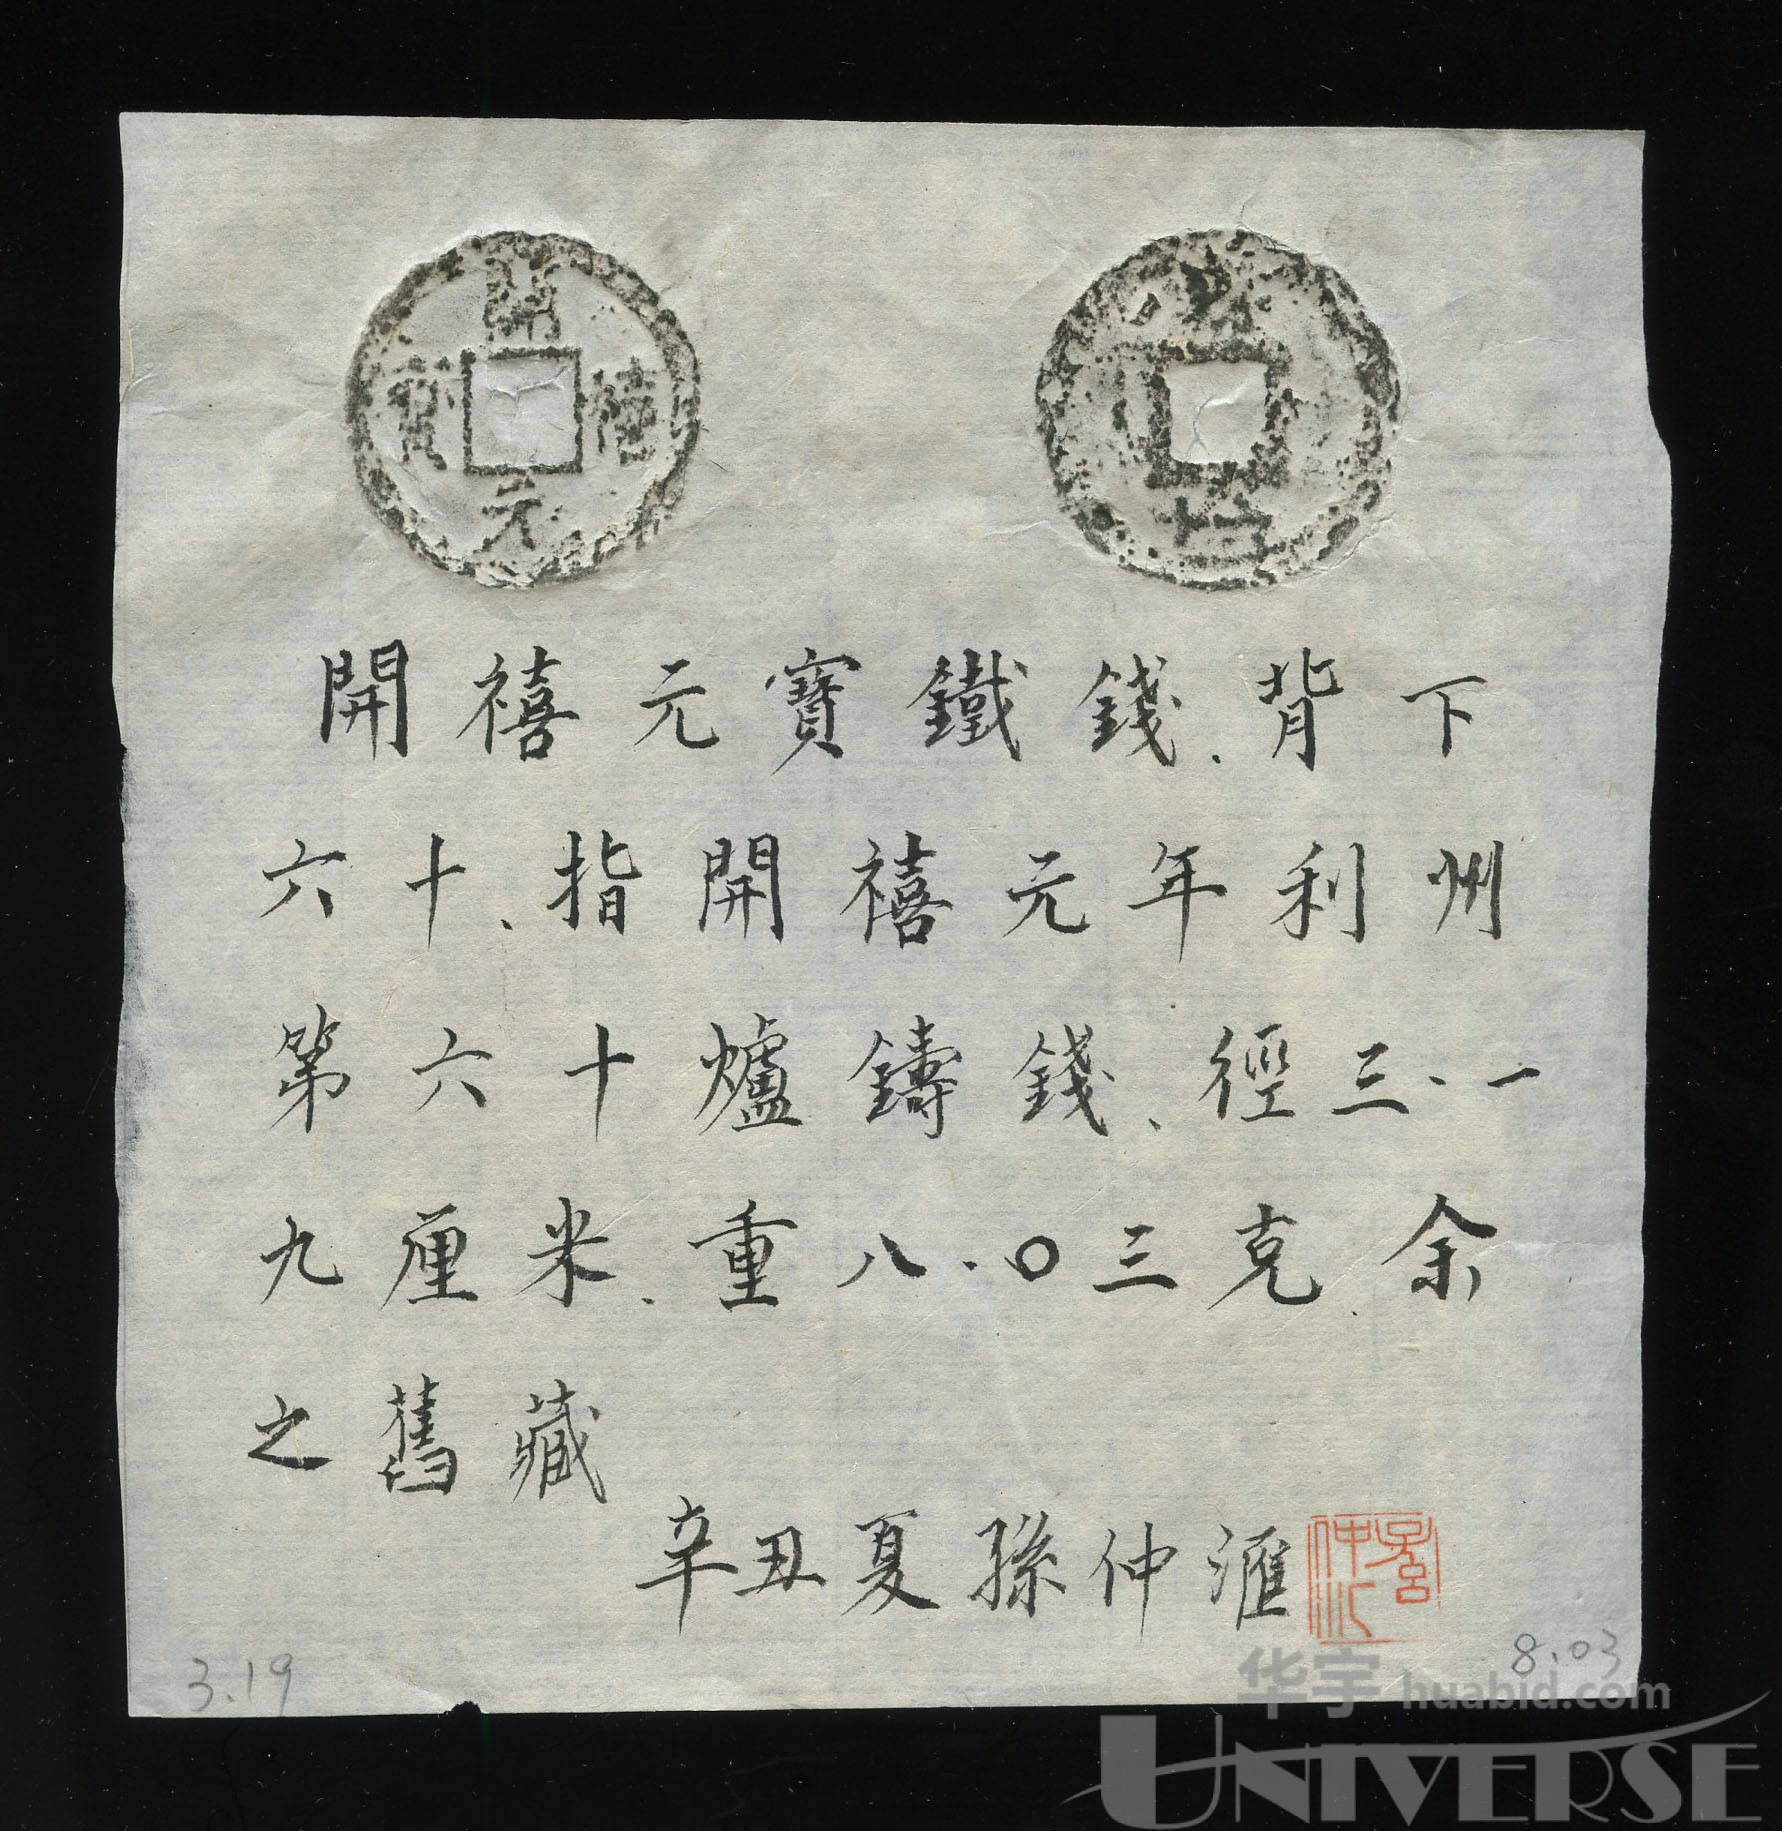 開
禧
元
寶
開禧元寶鐵錢、背下
六十、指開禧元年利州
第六十爐鑄錢、徑三·一
九厘米、重八·〇三克、余
之舊藏
辛丑夏孫仲滙
3.19
8.03
华宇 huabid.com
UNIVERSE